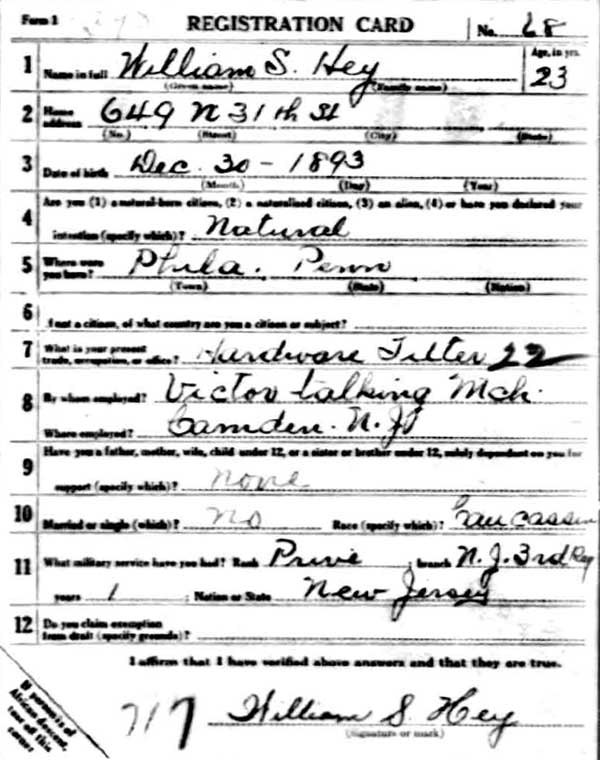 Form 1 REGISTRATION CARD No. 68
1 Name in full William S. Hey Age, in yrs. 23
(Given name) (Family name)
2 Home address 649 N 31th St
(No.) (Street) (City) (State)
3 Date of birth Dec. 30 - 1893
(Month) (Day) (Year)
4 Are you (1) a natural-born citizen, (2) a naturalized citizen, (3) an alien, (4) or have you declared your
intention (specify which)? Natural
5 Where were you born? Phila. Penn
(Town) (State) (Nation)
6 If not a citizen, of what country are you a citizen or subject?
7 What is your present trade, occupation, or office? Hardware 22
8 By whom employed? Victor talking Mch.
Where employed? Camden. N.J.
9 Have you a father, mother, wife, child under 12, or a sister or brother under 12, solely dependent on you for
support (specify which)? none
10 Married or single (which)? no Race (specify which)? Caucassin
11 What military service have you had? Rank Prive ; branch N.J. 3rd Reg
years 1 ; Nation or State New Jersey
12 Do you claim exemption from draft (specify grounds)?
I affirm that I have verified above answers and that they are true.
717 William S. Hey
(Signature or mark)
If person is of African descent, tear off this corner